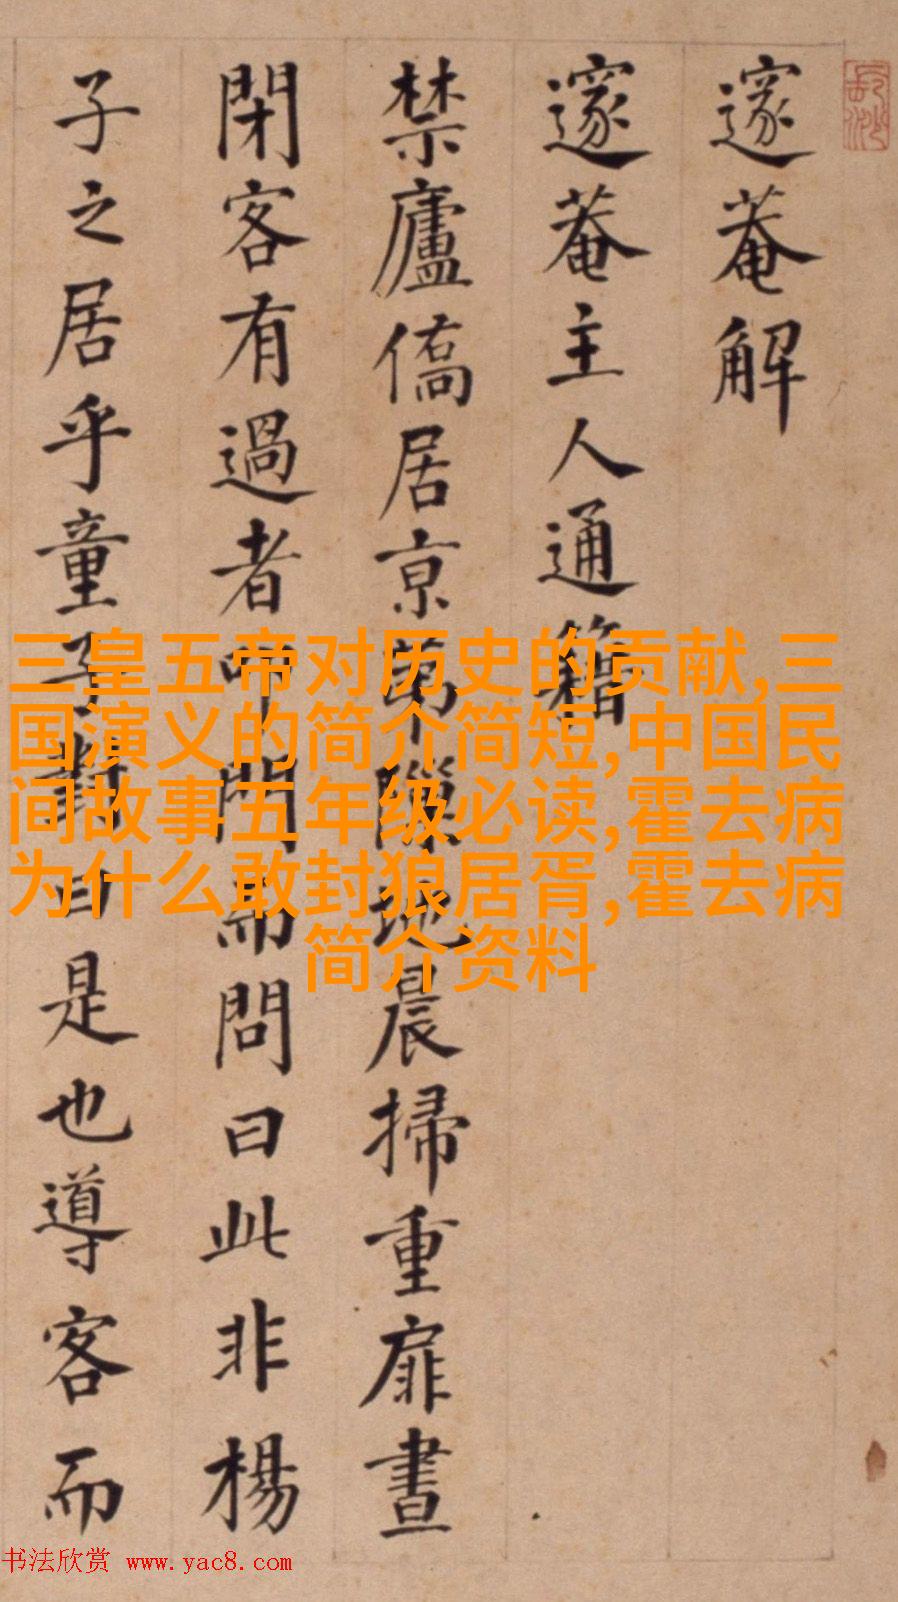 邃菴解
邃菴主人通籍
禁廬僑居亰萬地晨掃重扉晝
閉客有過者叩門而問曰此非楊
子之居乎童子對曰是也導客而
三皇五帝对历史的贡献,三
国演义的简介简短,中国民
间故事五年级必读,霍去病
为什么敢封狼居胥,霍去病
简介资料
书法欣赏 www.yac8.com